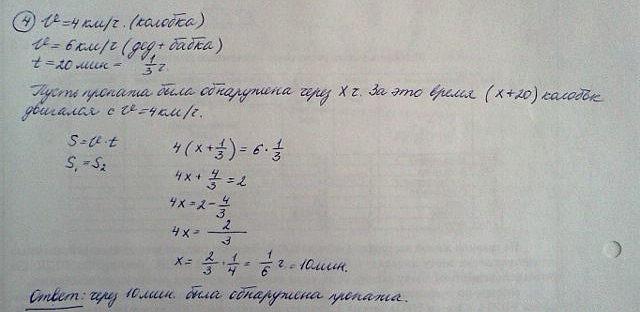 ④ V=4 км/ч. (колобка)
V=6 км/ч (дед+бабка)
t=20 мин = 1/3 ч.
Пусть пропажа была обнаружена через x ч. За это время (x+20) колобок
двигался с V=4 км/ч.
S=v·t
S₁=S₂
4(x+1/3)=6·1/3
4x+4/3=2
4x=2-4/3
4x=2/3
x=2/3·1/4=1/6 ч.=10 мин.
Ответ: через 10 мин. была обнаружена пропажа.